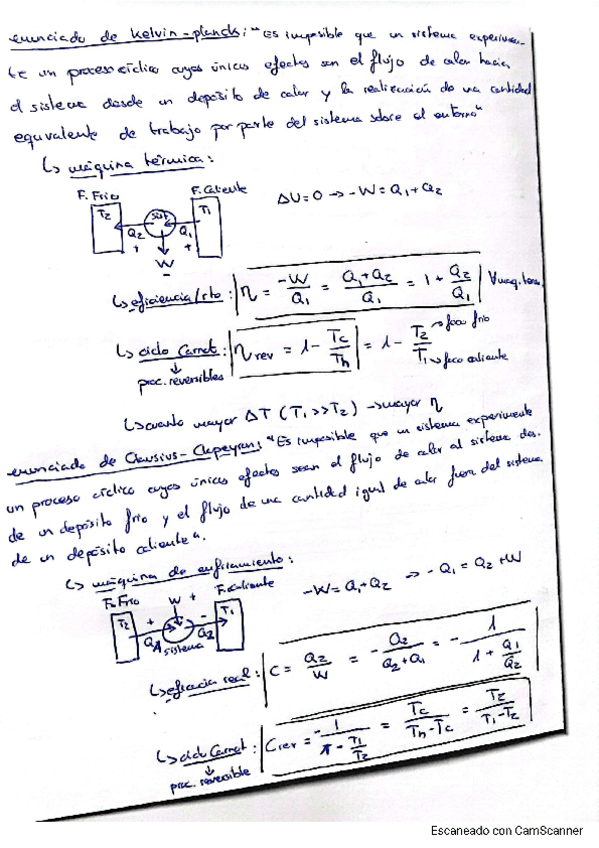 enunciado de Kelvin-planck: "Es imposible que un sistema experimen-
te un proceso cíclico cuyos únicos efectos sean el flujo de calor hacia
el sistema desde un depósito de calor y la realización de una cantidad
equivalente de trabajo por parte del sistema sobre el entorno"
↳ máquina térmica:
F. Frío F. Caliente
T2 sist T1
Q2 Q1
+ +
W
-
ΔU=0 → -W = Q1+Q2
↳ eficiencia/rto: η = -W/Q1 = (Q1+Q2)/Q1 = 1 + Q2/Q1 ∀ maq. term.
↳ ciclo Carnot: ηrev = 1 - Tc/Th = 1 - T2/T1 → foco frío → foco caliente
↓
proc. reversibles
↳ cuanto mayor ΔT (T1>>T2) → mayor η
enunciado de Clausius-Clapeyron: "Es imposible que un sistema experimente
un proceso cíclico cuyos únicos efectos sean el flujo de calor al sistema des-
de un depósito frío y el flujo de una cantidad igual de calor fuera del sistema
de un depósito caliente".
↳ máquina de enfriamiento:
F. Frío W + F. Caliente
T2 + - T1
sistema
-W = Q1+Q2 → -Q1 = Q2+W
↳ eficacia real: C = Q2/W = - Q2/(Q2+Q1) = - 1/(1 + Q1/Q2)
↳ ciclo Carnot: Crev = - 1/(1 - T1/T2) = Tc/(Th-Tc) = T2/(T1-T2)
↓
proc. reversible
Escaneado con CamScanner